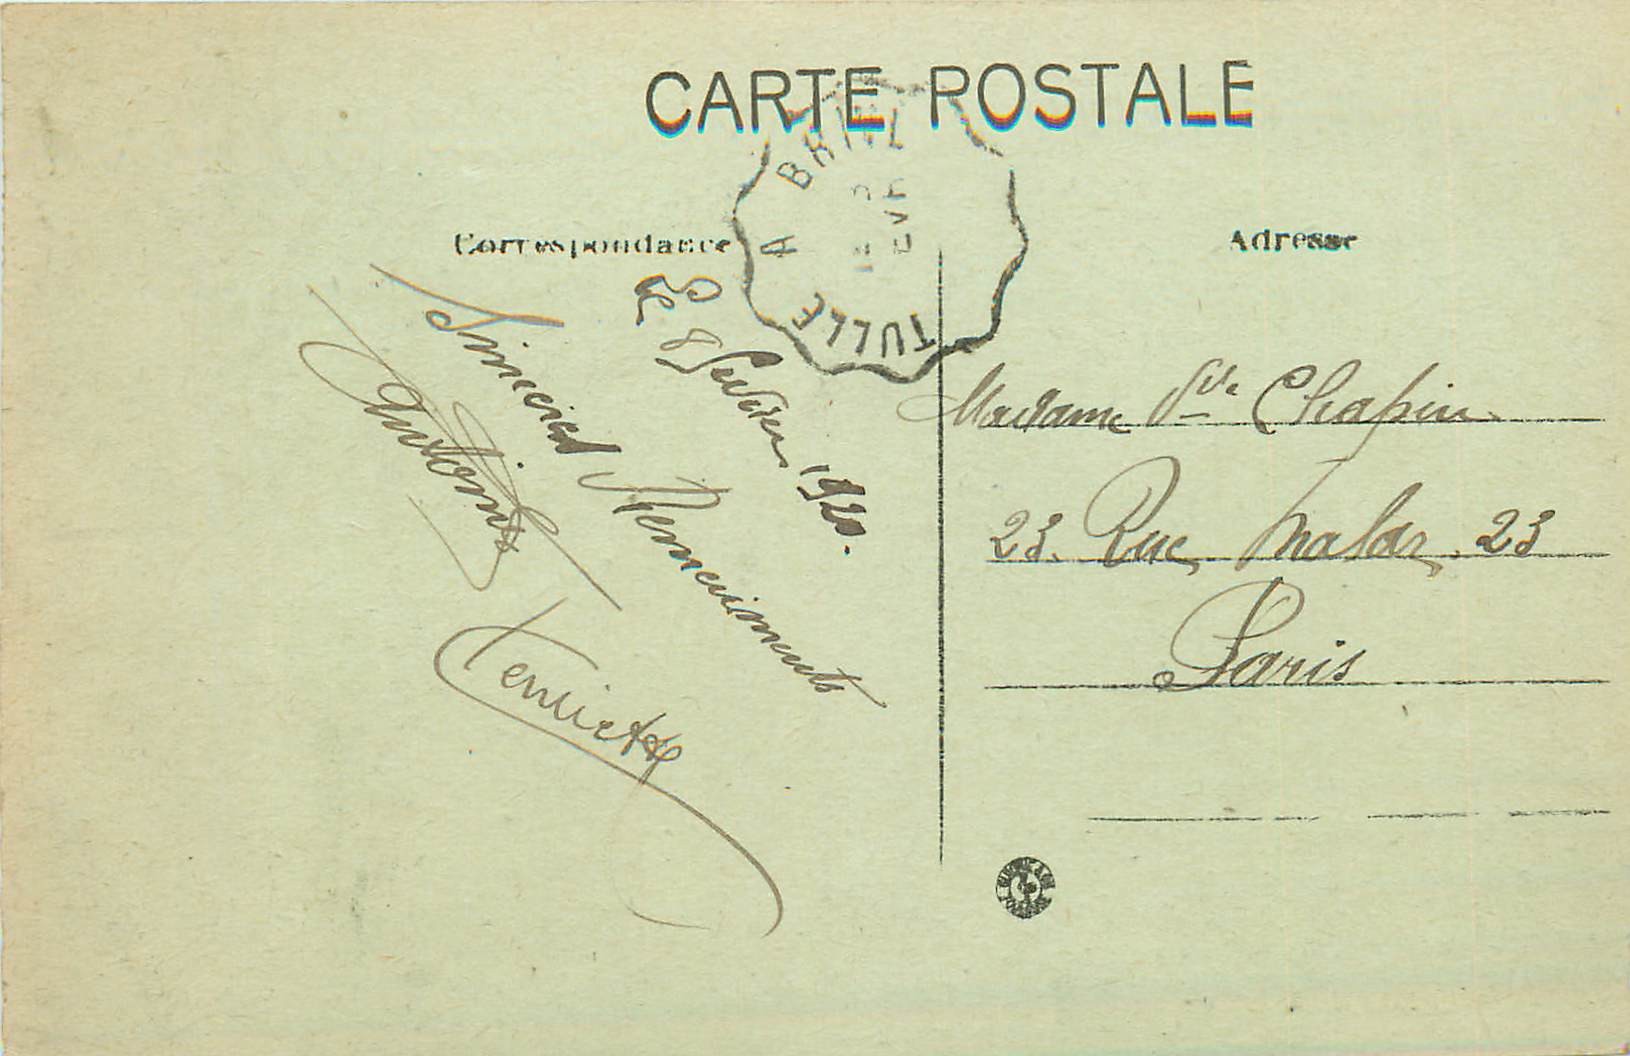 CARTE POSTALE
Correspondance
Adresse
TULLE A BRIVE
Le 8 Février 1920.
Sincères Remerciements
Antoine
Madame Vve Chapin
23. Rue Malar. 23
Paris